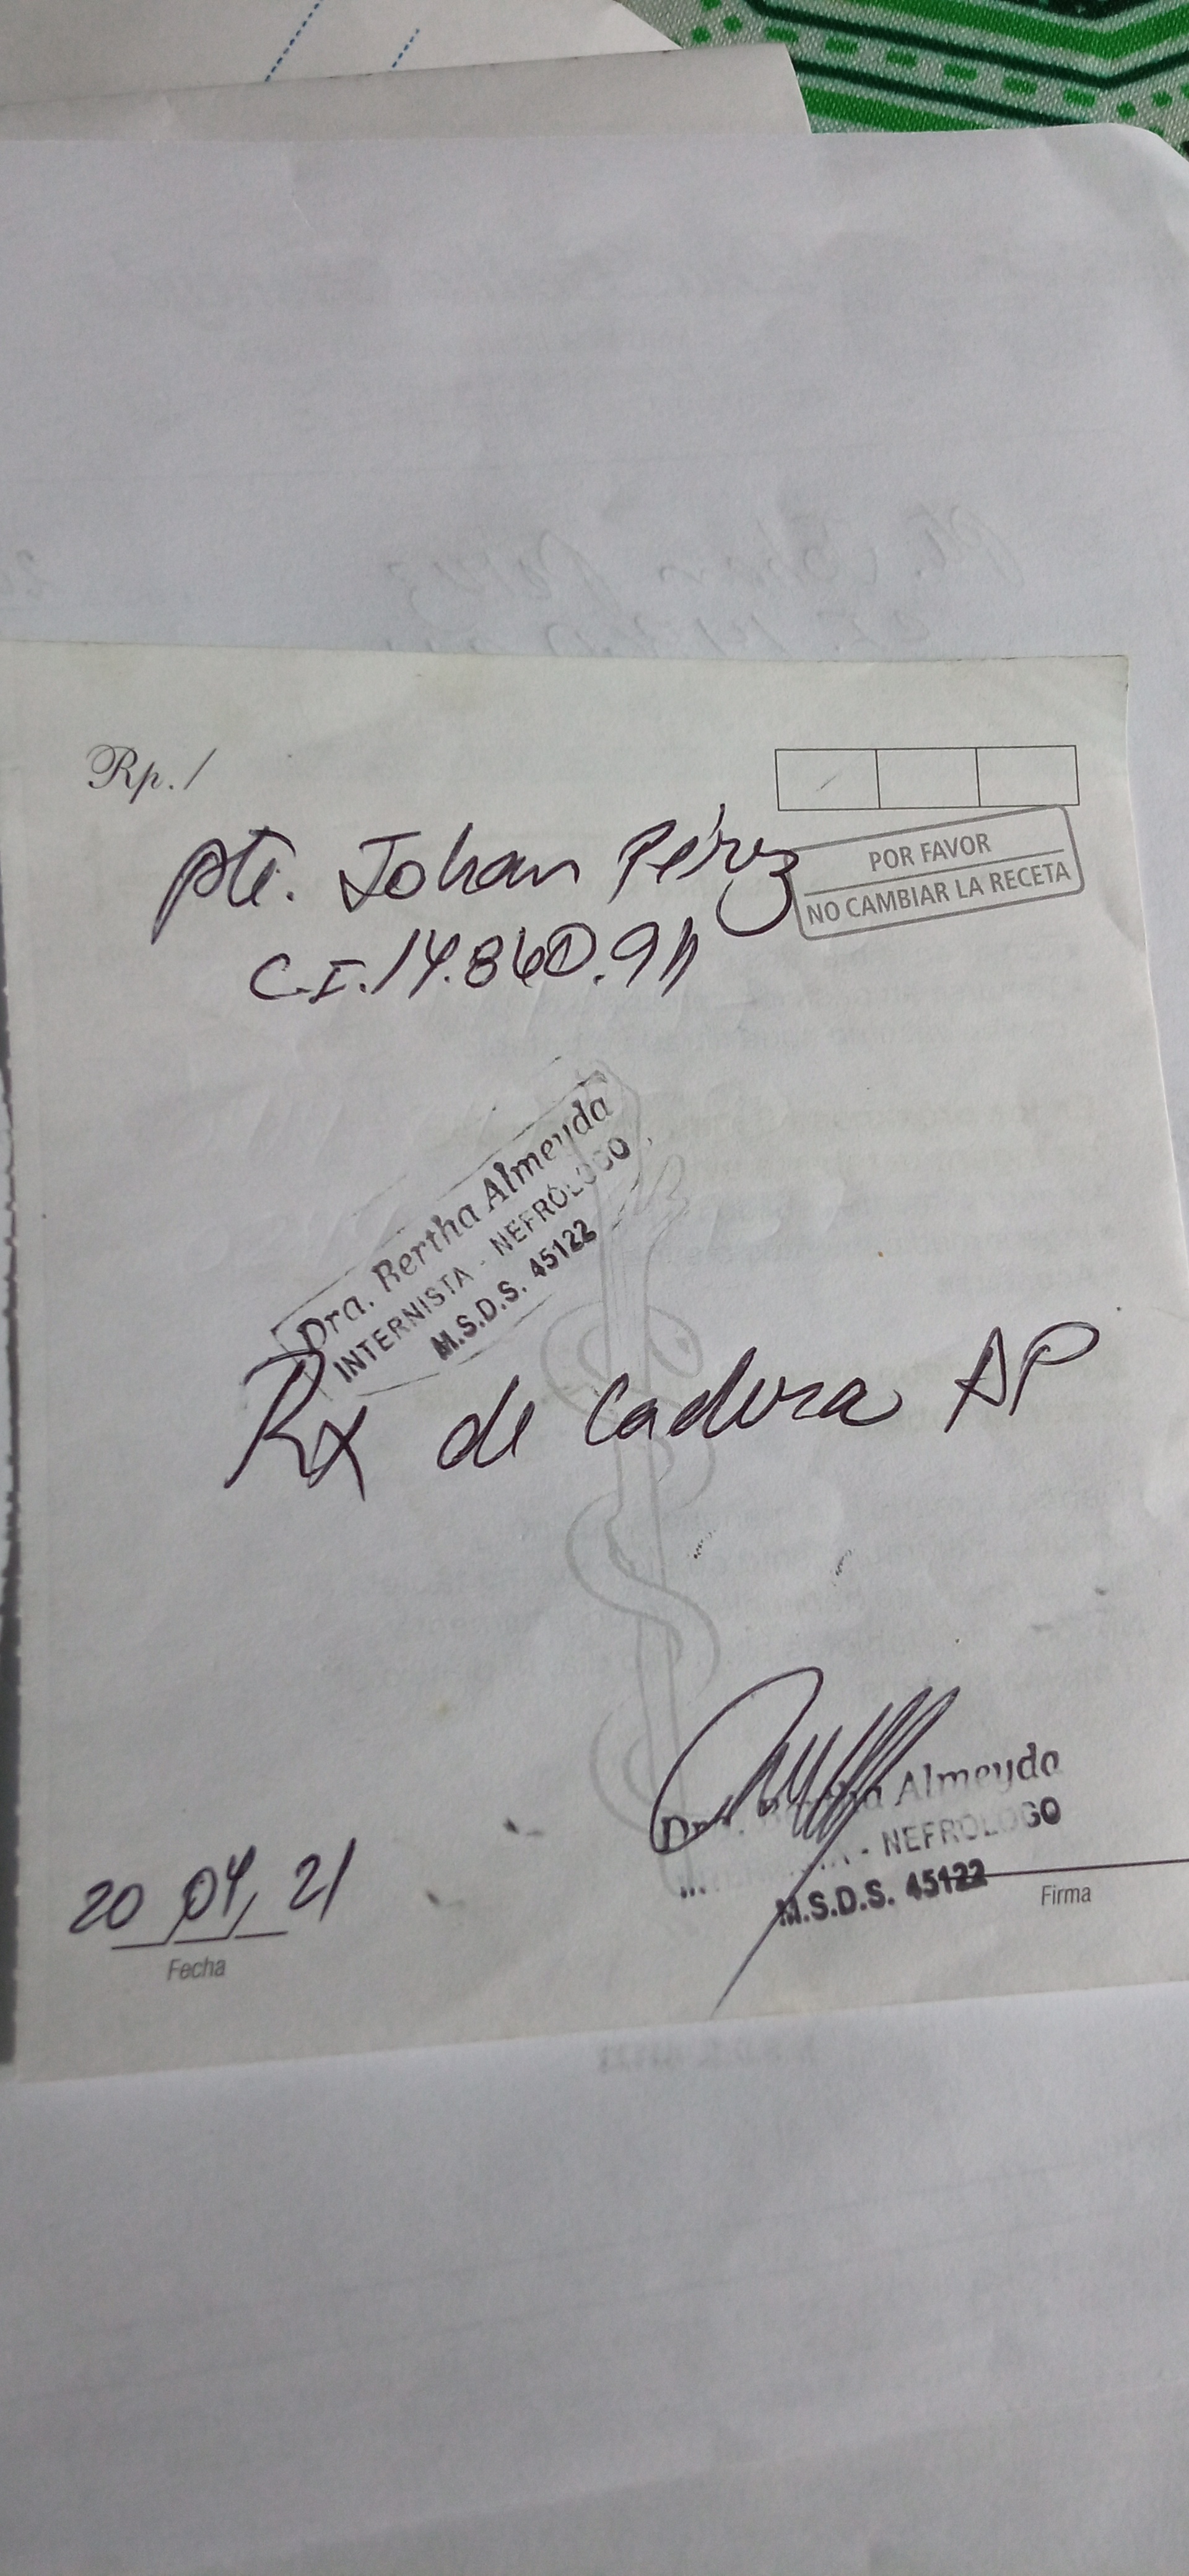 Rp./
POR FAVOR
NO CAMBIAR LA RECETA
pte. Johan Pérez
C.I. 14.860.911
Dra. Bertha Almeyda
INTERNISTA - NEFRÓLOGO
M.S.D.S. 45122
Rx de Cadera AP
Almeyda
- NEFROLOGO
M.S.D.S. 45122
Firma
20/04/21
Fecha